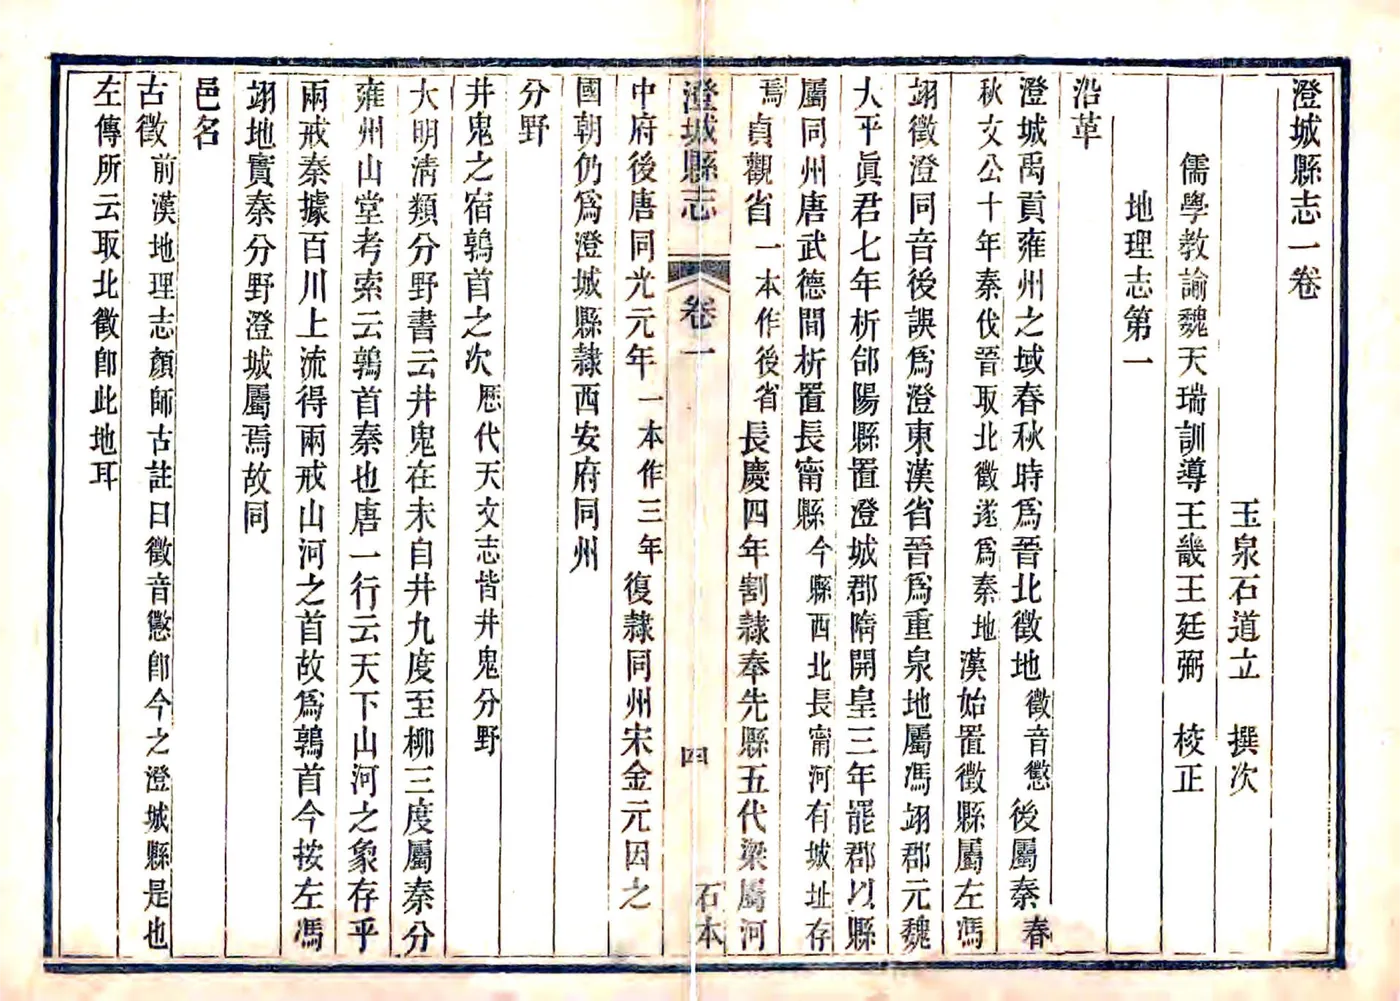 澄城縣志一卷
玉泉石道立　撰次
儒學教諭魏天瑞訓導王畿王廷弼　校正
地理志第一
沿革
澄城禹貢雍州之域春秋時爲晉北徵地徵音懲後屬秦春
秋文公十年秦伐晉取北徵遂爲秦地漢始置徵縣屬左馮
翊徵澄同音後誤爲澄東漢省晉爲重泉地屬馮翊郡元魏
大平眞君七年析郃陽縣置澄城郡隋開皇三年罷郡以縣
屬同州唐武德間析置長甯縣今縣西北長甯河有城址存
焉貞觀省一本作後省長慶四年割隸奉先縣五代梁屬河
澄城縣志　卷一　四　石本
中府後唐同光元年一本作三年復隸同州宋金元因之
國朝仍爲澄城縣隸西安府同州
分野
井鬼之宿鶉首之次歷代天文志皆井鬼分野
大明清類分野書云井鬼在未自井九度至柳三度屬秦分
雍州山堂考索云鶉首秦也唐一行云天下山河之象存乎
兩戒秦據百川上流得兩戒山河之首故爲鶉首今按左馮
翊地實秦分野澄城屬焉故同
邑名
古徵前漢地理志顏師古註曰徵音懲卽今之澄城縣是也
左傳所云取北徵卽此地耳